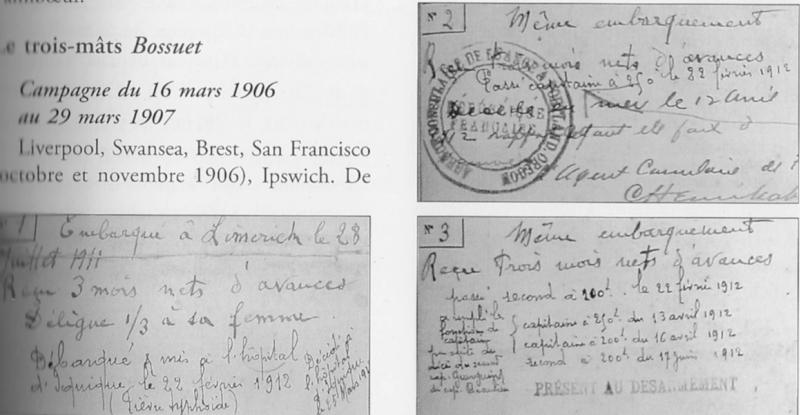 trois-mâts Bossuet
Campagne du 16 mars 1906
au 29 mars 1907
Liverpool, Swansea, Brest, San Francisco
octobre et novembre 1906), Ipswich. De
N° 1 Embarqué à Limerick le 28
Juillet 1911
Reçu 3 mois nets d'avances
Délégue 1/3 à sa femme
Débarqué & mis à l'hôpital
d'Iquique, le 22 février 1912
(Fièvre typhoïde)
Décédé
à l'hôpital
N° 2 Même embarquement
mois nets d'avances
Passé capitaine à 250 le 22 février 1912
mer le 12 Avril
AGENCE CONSULAIRE DE FRANCE A PORTLAND, OREGON
RÉPUBLIQUE
FRANÇAISE
Agent Consulaire de
N° 3 Même embarquement
Reçu Trois mois nets d'avances
passé second à 200f. le 22 février 1912
a rempli les
fonctions de
capitaine
capitaine à 250f. du 13 avril 1912
capitaine à 200f. du 16 avril 1912
second à 200f. du 17 juin 1912
PRÉSENT AU DÉSARMEMENT